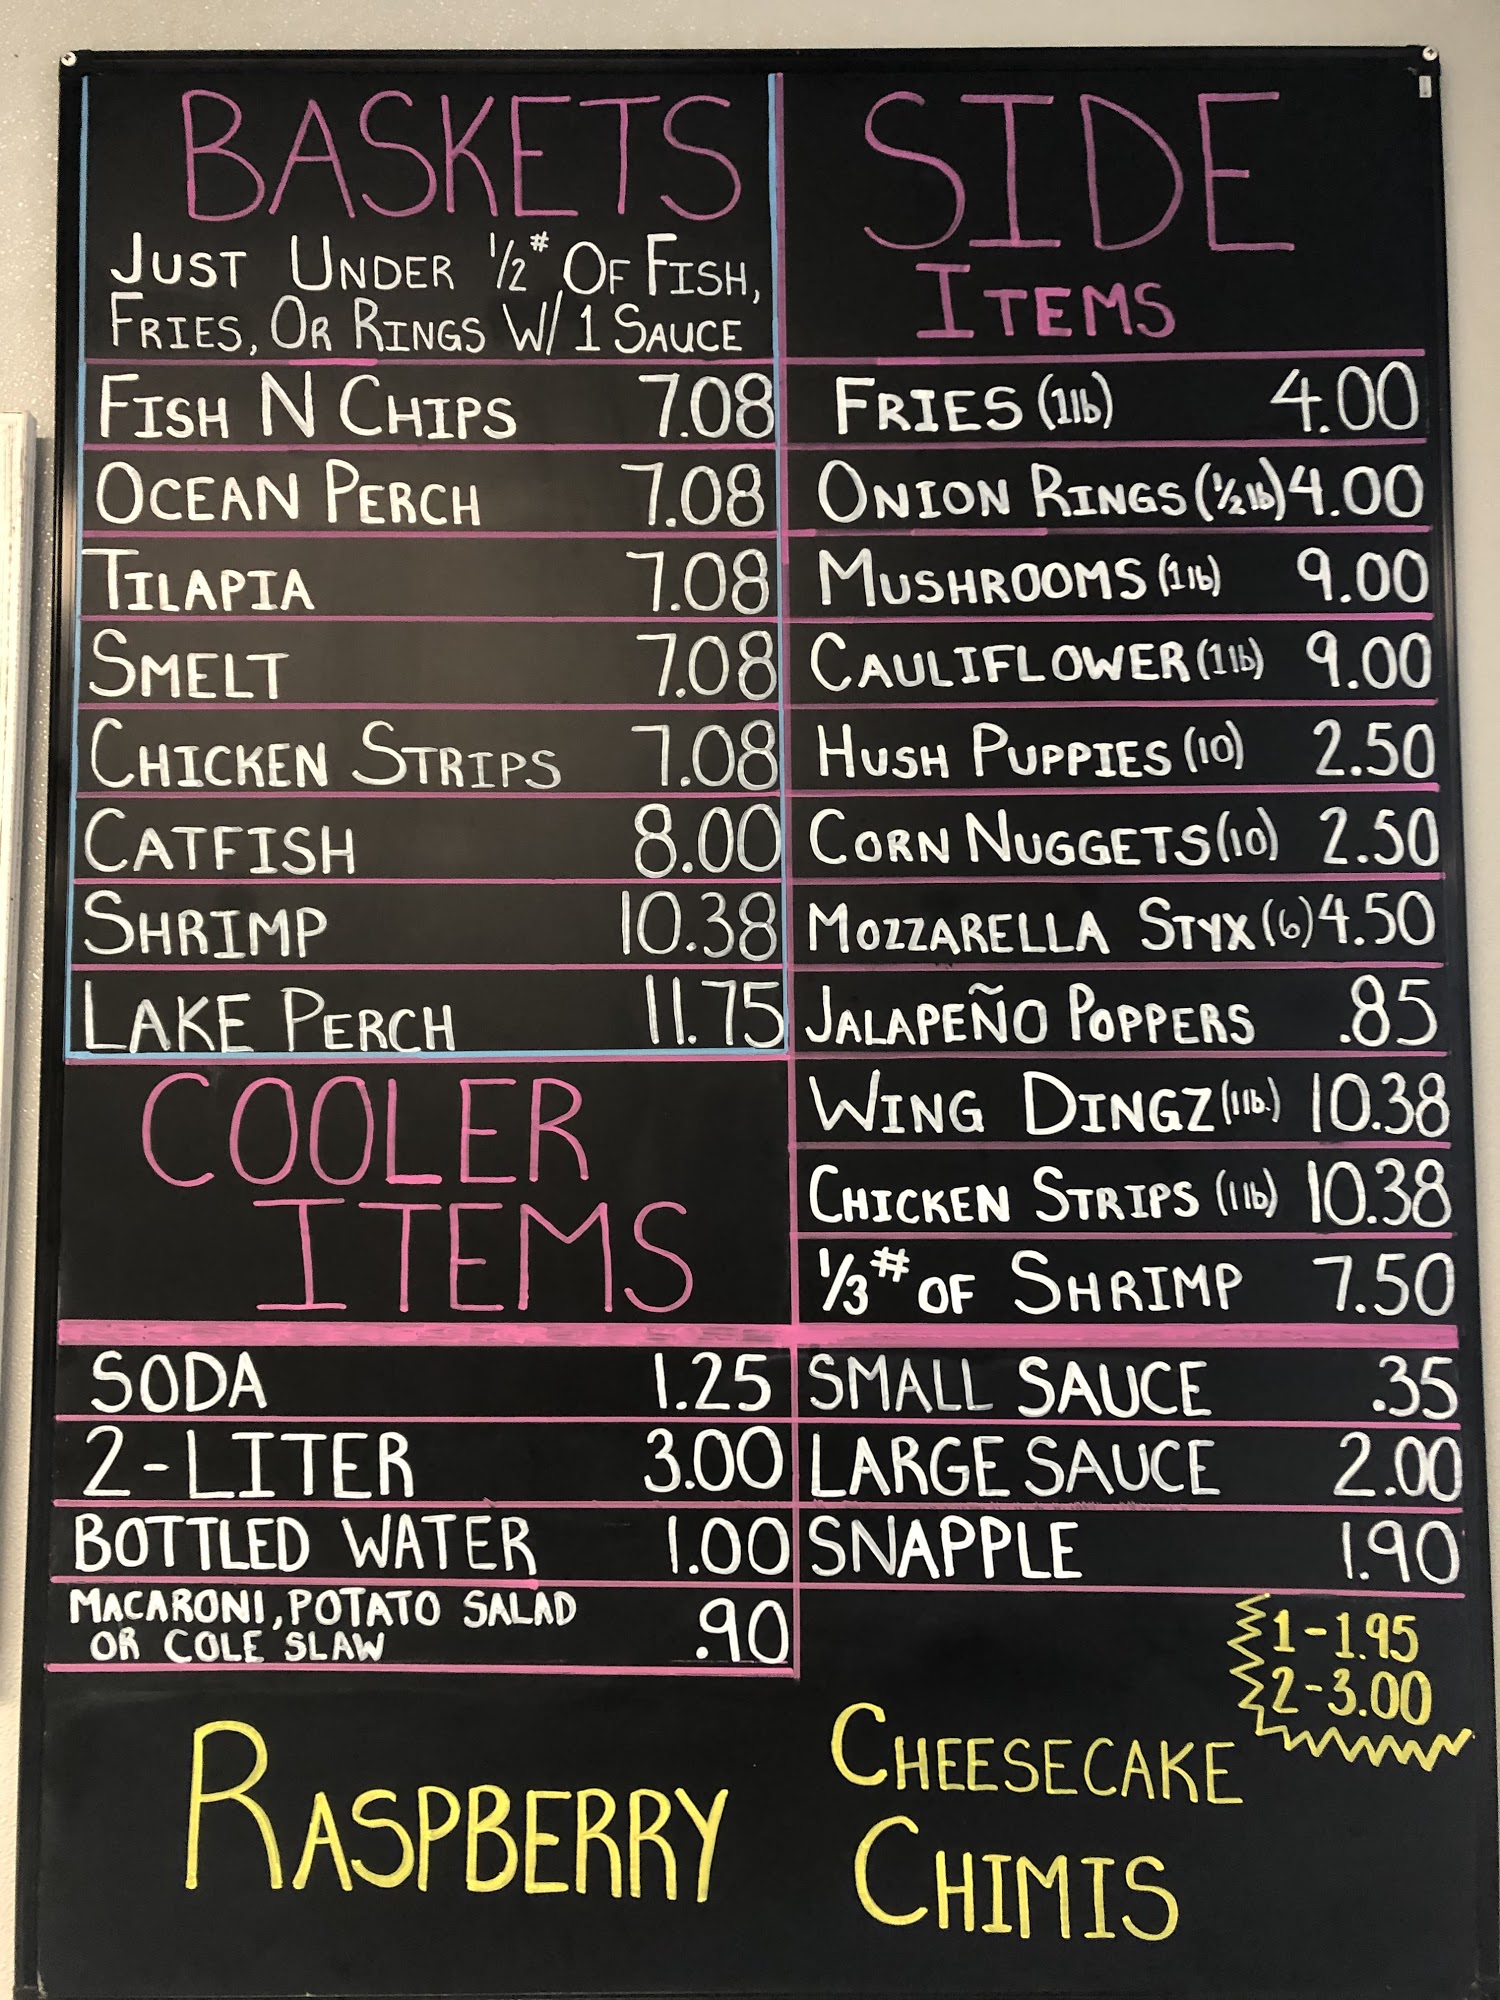 BASKETS
JUST UNDER 1/2# OF FISH,
FRIES, OR RINGS W/ 1 SAUCE
FISH N CHIPS 7.08
OCEAN PERCH 7.08
TILAPIA 7.08
SMELT 7.08
CHICKEN STRIPS 7.08
CATFISH 8.00
SHRIMP 10.38
LAKE PERCH 11.75
COOLER
ITEMS
SODA 1.25
2-LITER 3.00
BOTTLED WATER 1.00
MACARONI, POTATO SALAD
OR COLE SLAW .90
SIDE
ITEMS
FRIES (1lb) 4.00
ONION RINGS (1/2 lb) 4.00
MUSHROOMS (1lb) 9.00
CAULIFLOWER (1lb) 9.00
HUSH PUPPIES (10) 2.50
CORN NUGGETS (10) 2.50
MOZZARELLA STYX (6) 4.50
JALAPEÑO POPPERS .85
WING DINGZ (1lb.) 10.38
CHICKEN STRIPS (1lb) 10.38
1/3# OF SHRIMP 7.50
SMALL SAUCE .35
LARGE SAUCE 2.00
SNAPPLE 1.90
1-1.95
2-3.00
RASPBERRY
CHEESECAKE
CHIMIS